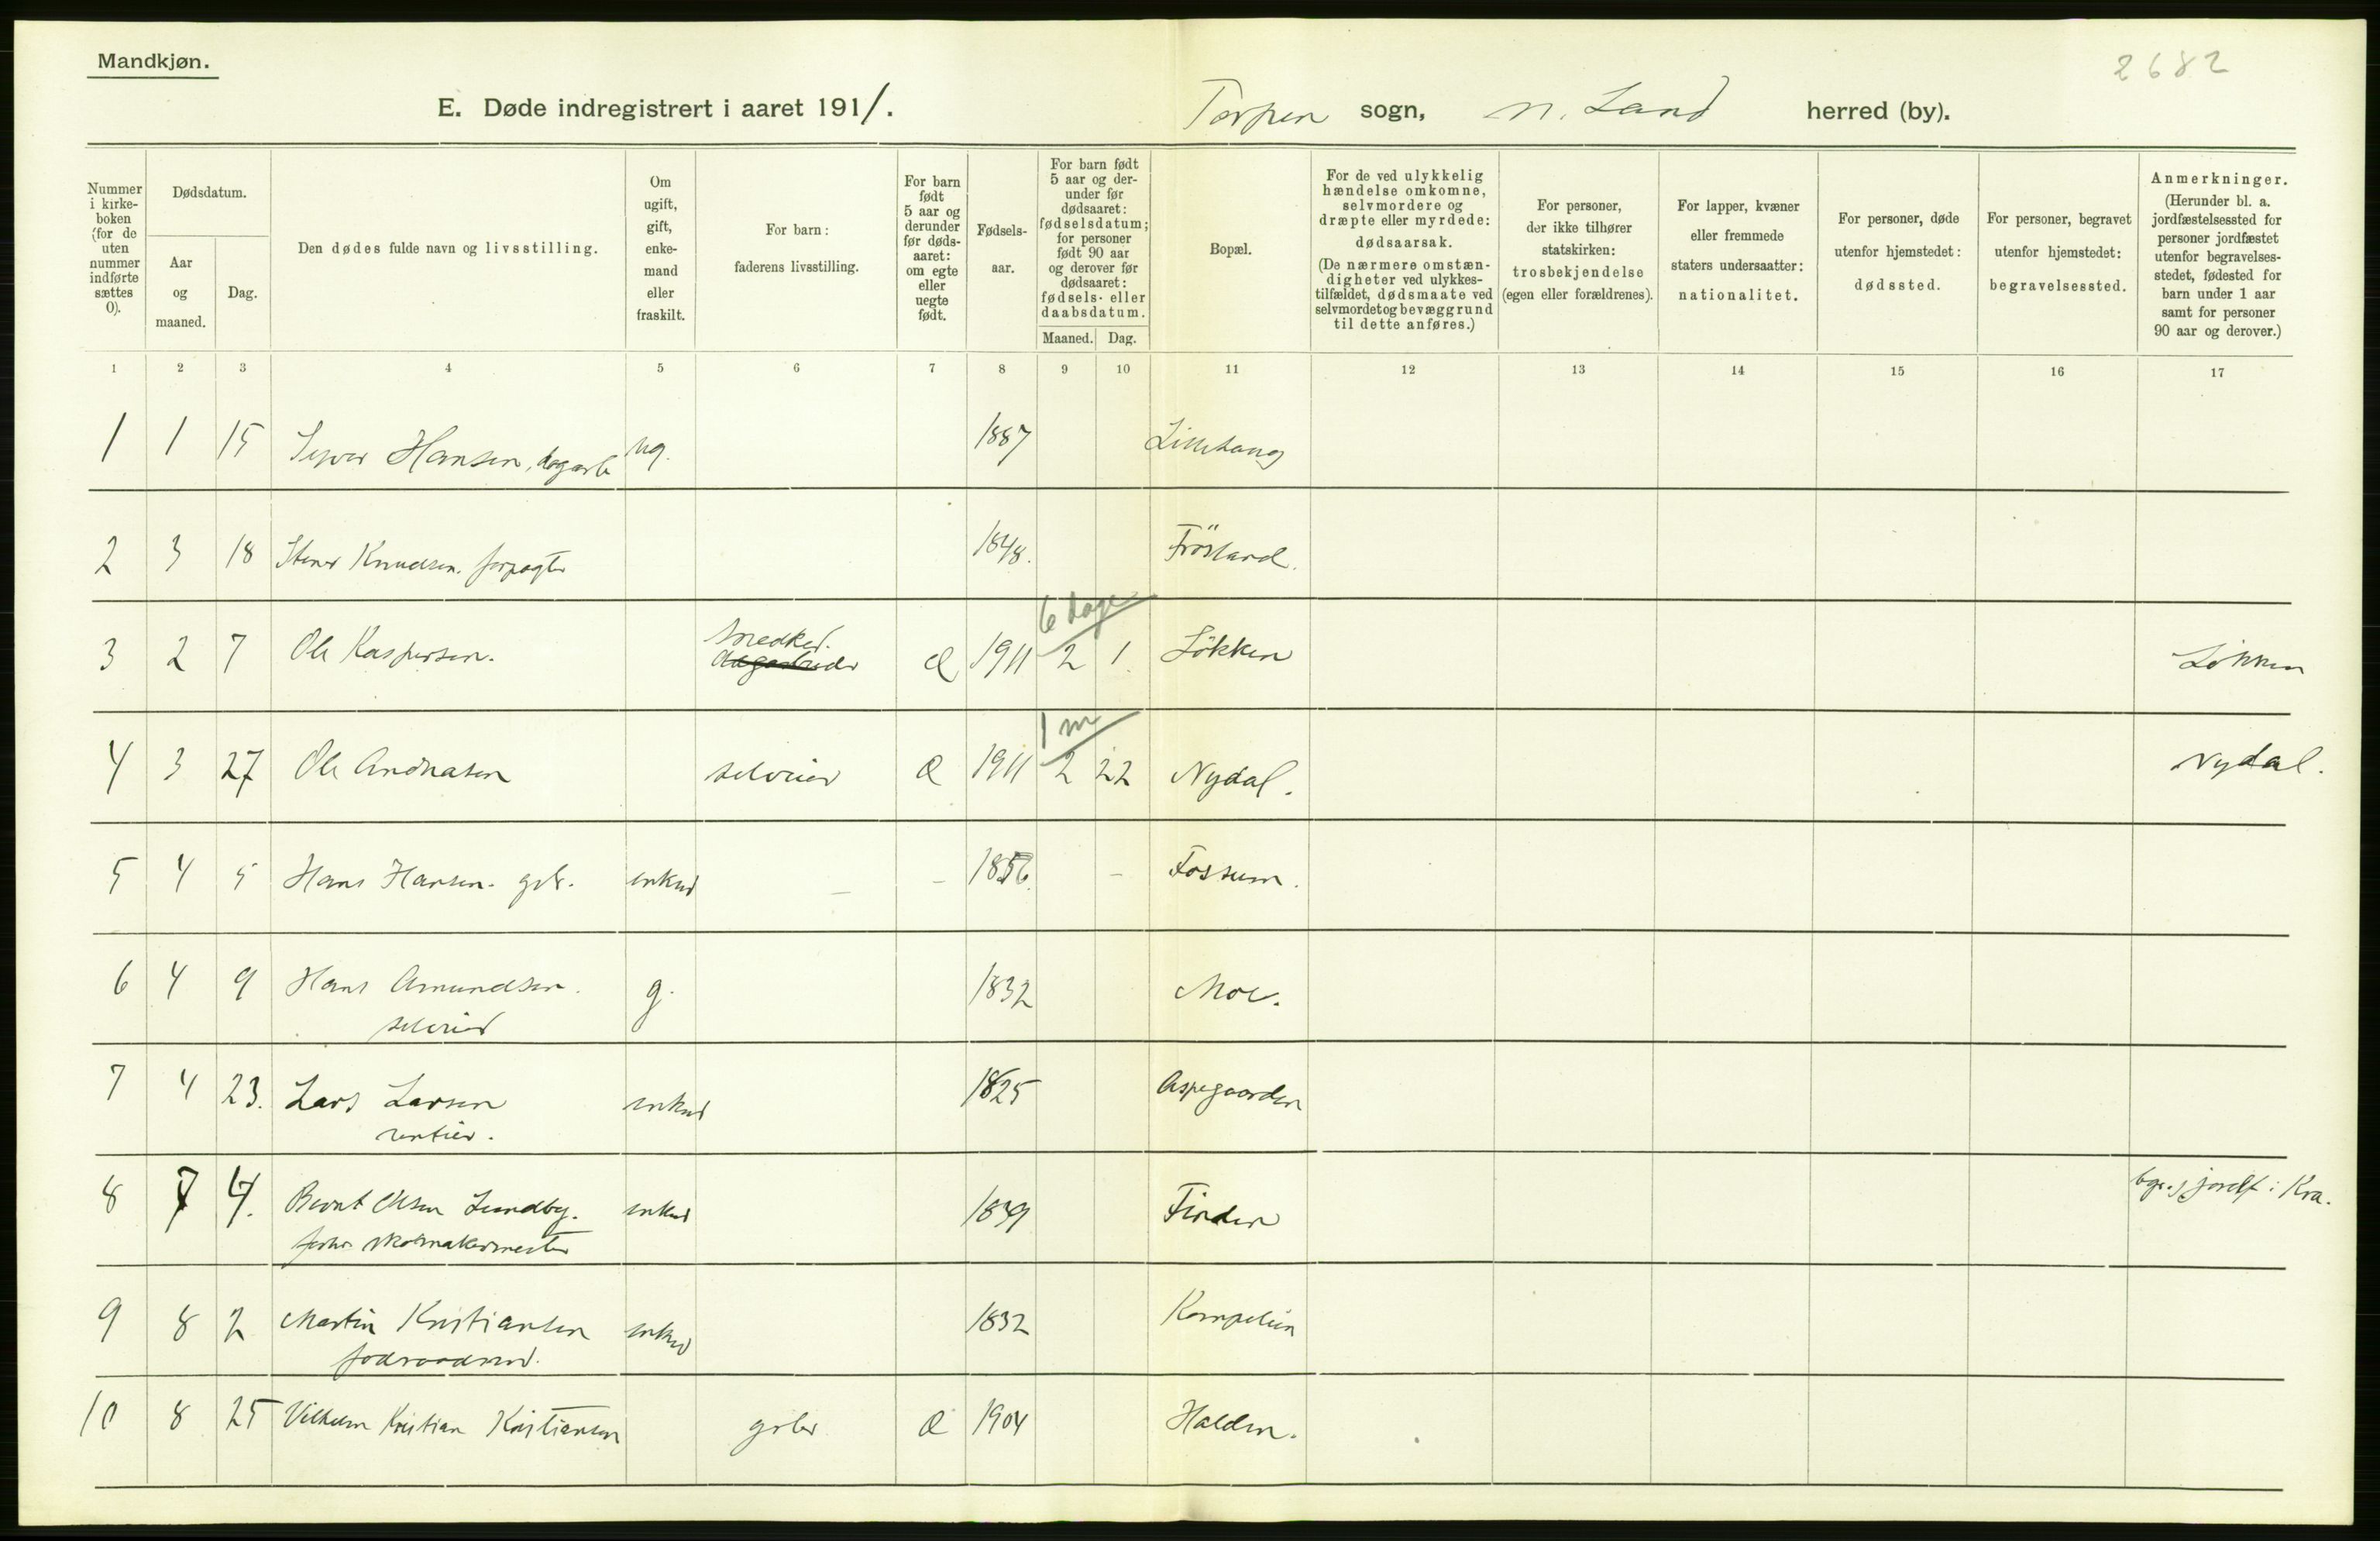 Mandkjøn.
2682
E. Døde indregistrert i aaret 1911. Torpen sogn, N. Land herred (by).
Nummer i kirke- boken (for de uten nummer indførte sættes 0).
Dødsdatum.
Aar og maaned.
Dag.
Den dødes fulde navn og livsstilling.
Om ugift, gift, enke- mand eller fraskilt.
For barn: faderens livsstilling.
For barn født 5 aar og derunder før døds- aaret: om egte eller uegte født.
Fødsels- aar.
For barn født 5 aar og der- under før dødsaaret: fødselsdatum; for personer født 90 aar og derover før dødsaaret: fødsels- eller daabsdatum.
Maaned. Dag.
Bopæl.
For de ved ulykkelig hændelse omkomne, selvmordere og dræpte eller myrdede: dødsaarsak. (De nærmere omstæn- digheter ved ulykkes- tilfældet, dødsmaate ved selvmordet og bevæggrund til dette anføres.)
For personer, der ikke tilhører statskirken: trosbekjendelse (egen eller forældrenes).
For lapper, kvæner eller fremmede staters undersaatter: nationalitet.
For personer, døde utenfor hjemstedet: dødssted.
For personer, begravet utenfor hjemstedet: begravelsessted.
Anmerkninger. (Herunder bl. a. jordfæstelsessted for personer jordfæstet utenfor begravelses- stedet, fødested for barn under 1 aar samt for personer 90 aar og derover.)
1 2 3 4 5 6 7 8 9 10 11 12 13 14 15 16 17
1 1 15 Syver Hansen, dagarb ug. 1887 Lillehaug
2 3 18 Stener Knudsen. forpagter 1848. Frösland.
6 dage
snedker.
3 2 7 Ole Kaspersen. dagarbeider Æ 1911 2 1. Lökken Lökken
1 m
4 3 27 Ole Andreasen selveier Æ 1911 2 22 Nydal. Nydal.
5 4 5 Hans Hansen. gbr. enkem – – 1856. – Fossum.
6 4 9 Hans Amundsen. g. 1832 Moe.
selveier
7 4 23. Lars Larsen enkem 1825 Aspegaarden
rentier.
8 7 4. Bernt Olsen Lundby. enkem 1839 Finden bgr. jordf. i Kra.
forhv. skomakermester
9 8 2 Martin Kristiansen enkem 1832 Kompelien
födraadsm.
10 8 25 Vilhelm Kristian Kristiansen gbr Æ 1904 Halden.